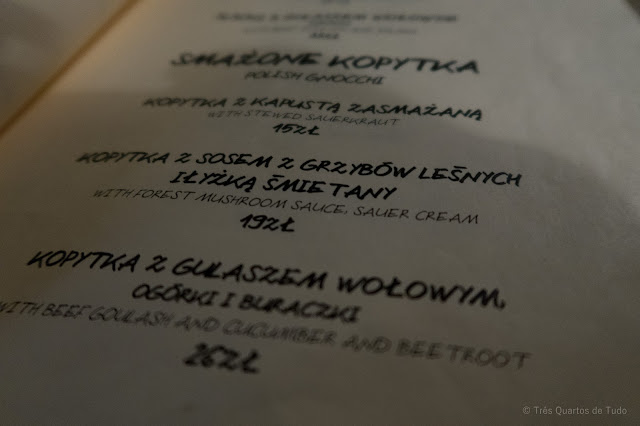 Z GULASZEM WOŁOWYM
SMAŻONE KOPYTKA
POLISH GNOCCHI
KOPYTKA Z KAPUSTĄ ZASMAŻANĄ
WITH STEWED SAUERKRAUT
15ZŁ
KOPYTKA Z SOSEM Z GRZYBÓW LEŚNYCH
I ŁYŻKĄ ŚMIETANY
WITH FOREST MUSHROOM SAUCE, SAUER CREAM
19ZŁ
KOPYTKA Z GULASZEM WOŁOWYM,
OGÓRKI I BURACZKI
WITH BEEF GOULASH AND CUCUMBER AND BEETROOT
26ZŁ
© Três Quartos de Tudo